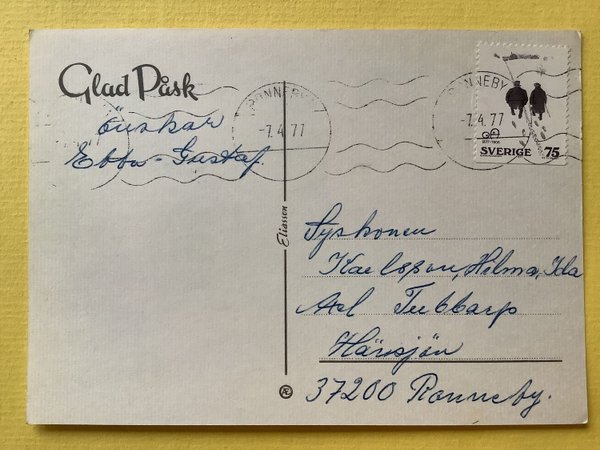 Glad Påsk
önskar
Ebba-Gustaf.
RONNEBY
-7.4.77
RONNEBY
-7.4.77
SVERIGE 75
Eliasson
Syskonen
Karlsson, Hilma, Ida
Axel Tubbarp
Härsjön
37200 Ronneby.